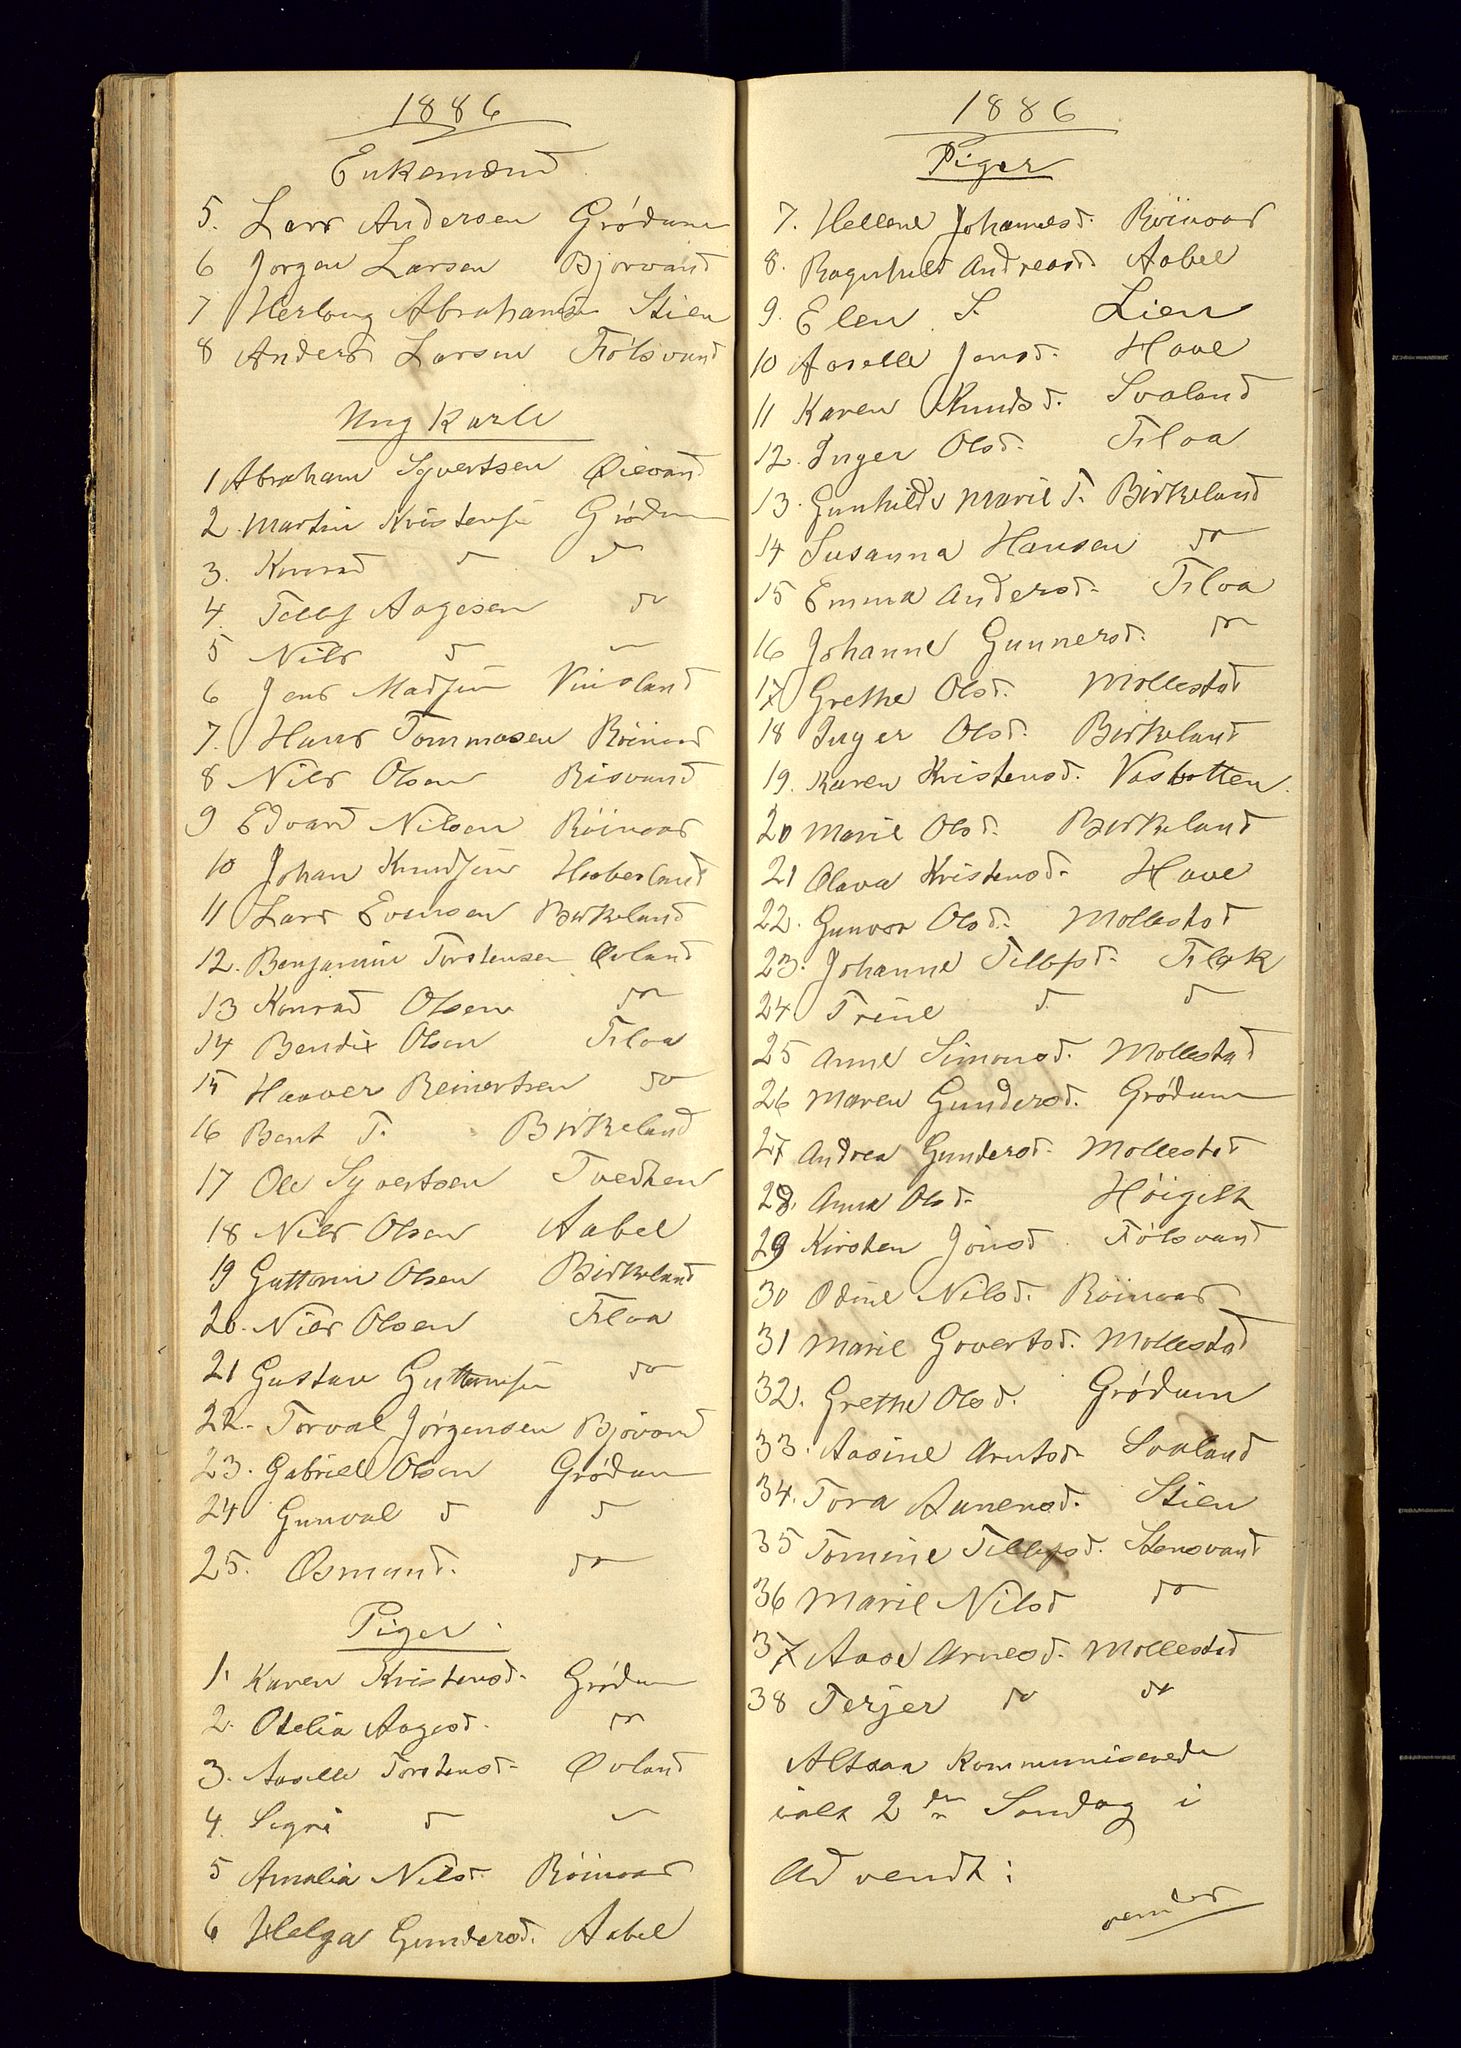 1886
Enkemænd
5. Lars Andersen Grödum
6 Jorgen Larsen Bjorvand
7 Herloug Abrahams Stien
8 Anders Larsen Fiölsvand
Ung Karle
1 Abraham Syvertsen Øievand
2. Martin Kristensen Grödum
3. Konrad d do
4. Tellef Aagesen do
5 Nils d —
6 Jens Madsen Vinsland
7. Hans Tommasen Röinaas
8 Nils Olsen Risvand
9 Edvard Nilsen Röinaas
10 Johan Knudsen Haaberland
11 Lars Evensen Birkeland
12. Benjamin Torstensen Øvland
13 Konrad Olsen do
14 Bendix Olsen Filaa
15 Haaver Reinertsen do
16 Bent T. Birkeland
17 Ole Syvertsen Tvedten
18 Nils Olsen Aabel
19 Guttorm Olsen Birkeland
20. Nils Olsen Filaa
21 Gustav Guttormsen do
22. Torval Jörgensen Bjövand
23. Gabriel Olsen Grödum
24 Gunval d d
25. Osmund. do
Piger.
1. Karen Kristensd. Grödum
2. Otelia Aagesd. do
3. Aaselle Torstensd. Øvland
4. Sigri d —
5 Amalia Nilsd. Röinaas
6 Helga Gundersd. Aabel
1886
Piger
7. Hellene Johannesd. Röinaas
8. Ragnhild Andreasd Aabel
9. Elen S. Lien
10 Aaselle Jensd. Have
11 Karen Knudsd. Svaland
12. Inger Olsd. Filaa
13. Gunhild Marie T. Birkeland
14 Susanna Hansen do
15 Emma Andersd. Filaa
16 Johanne Gunnersd. do
17 Grethe Olsd. Mollestad
18 Inger Olsd. Birkeland
19. Karen Kristensd. Vasbotten.
20 Marie Olsd. Birkeland
21 Olava Kristensd. Have
22. Gunvor Olsd. Mollestad
23. Johanne Tellefsd. Flak
24 Trine d. d
25 Anne Simonsd. Mollestad
26 Maren Gundersd. Grödum
27 Andrea Gundersd. Mollestad
28. Anna Olsd. Höigilt
29 Kirsten Jönsd. Fiölsvand
30 Odine Nilsd. Röinaas
31 Marie Govertsd. Mollestad
32. Grethe Olsd. Grödum
33. Aasine Arntsd. Svaland
34. Tora Aanensd. Stien
35 Tomine Tellefsd. Stensvand
36 Marie Nilsd do
37 Aase Arnesd. Mollestad
38 Terjer do do
Altsaa Kommunicerede
ialt 2den Sondag i
Advendt: